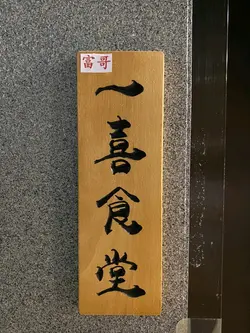 富哥
一喜食堂